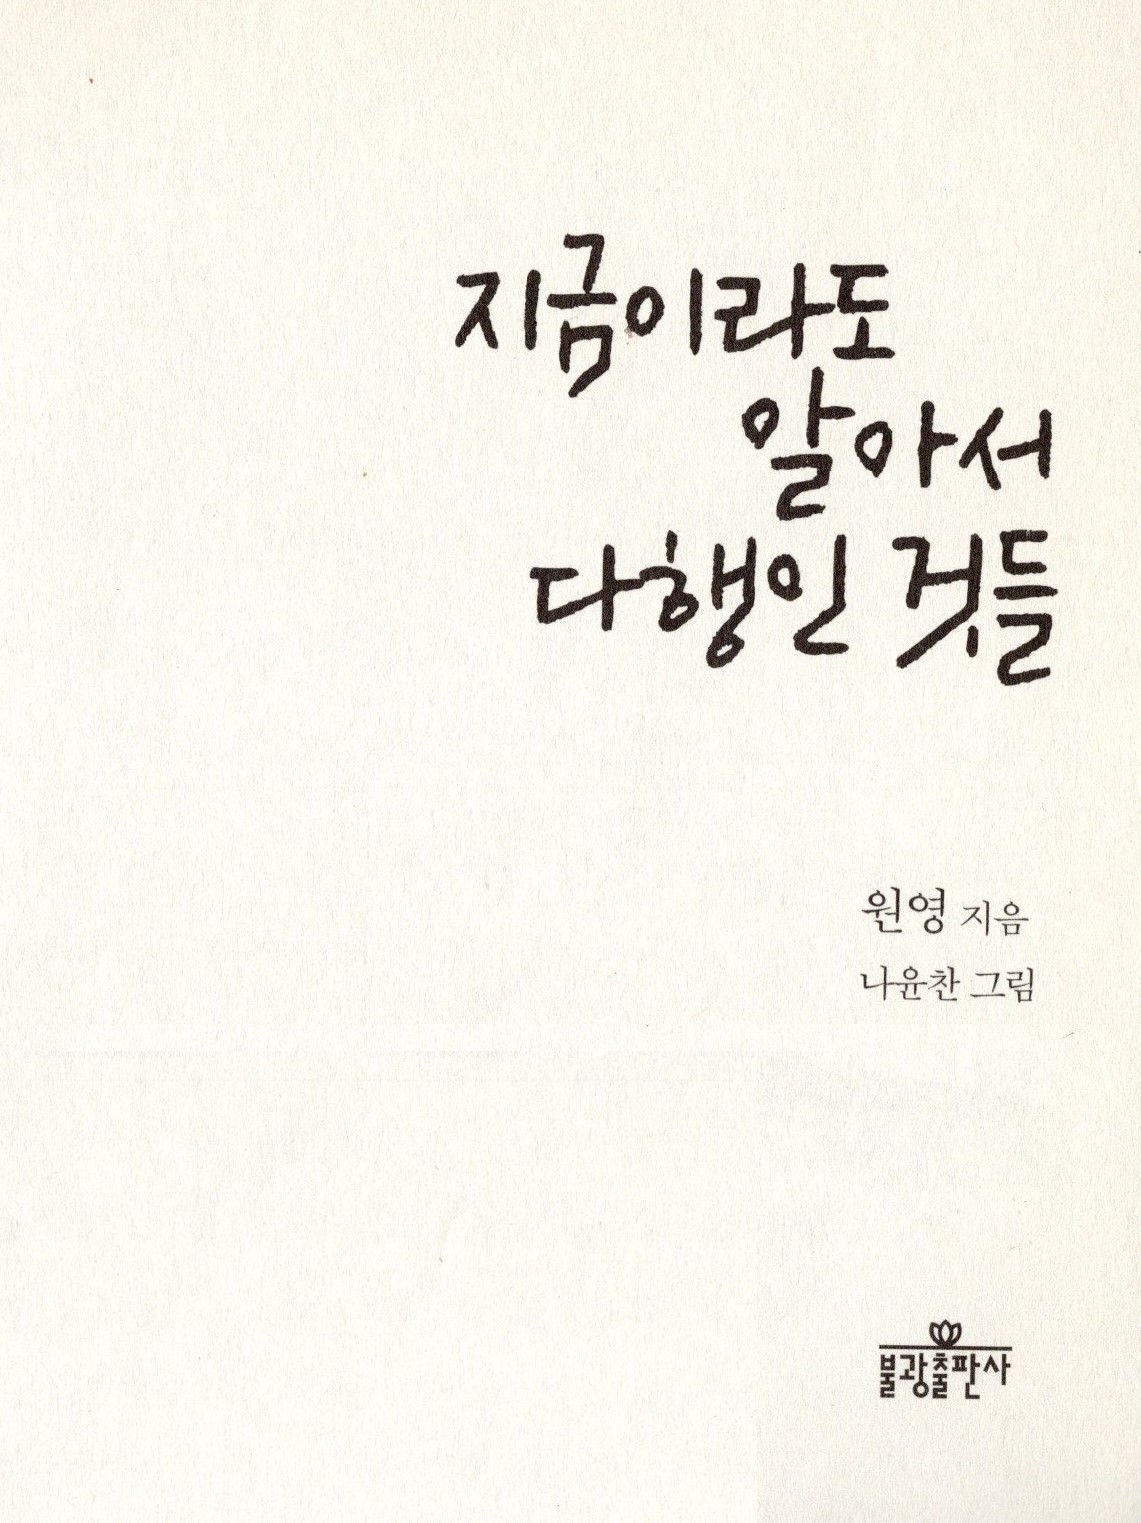 지금이라도
알아서
다행인 것들
원영 지음
나윤찬 그림
불광출판사